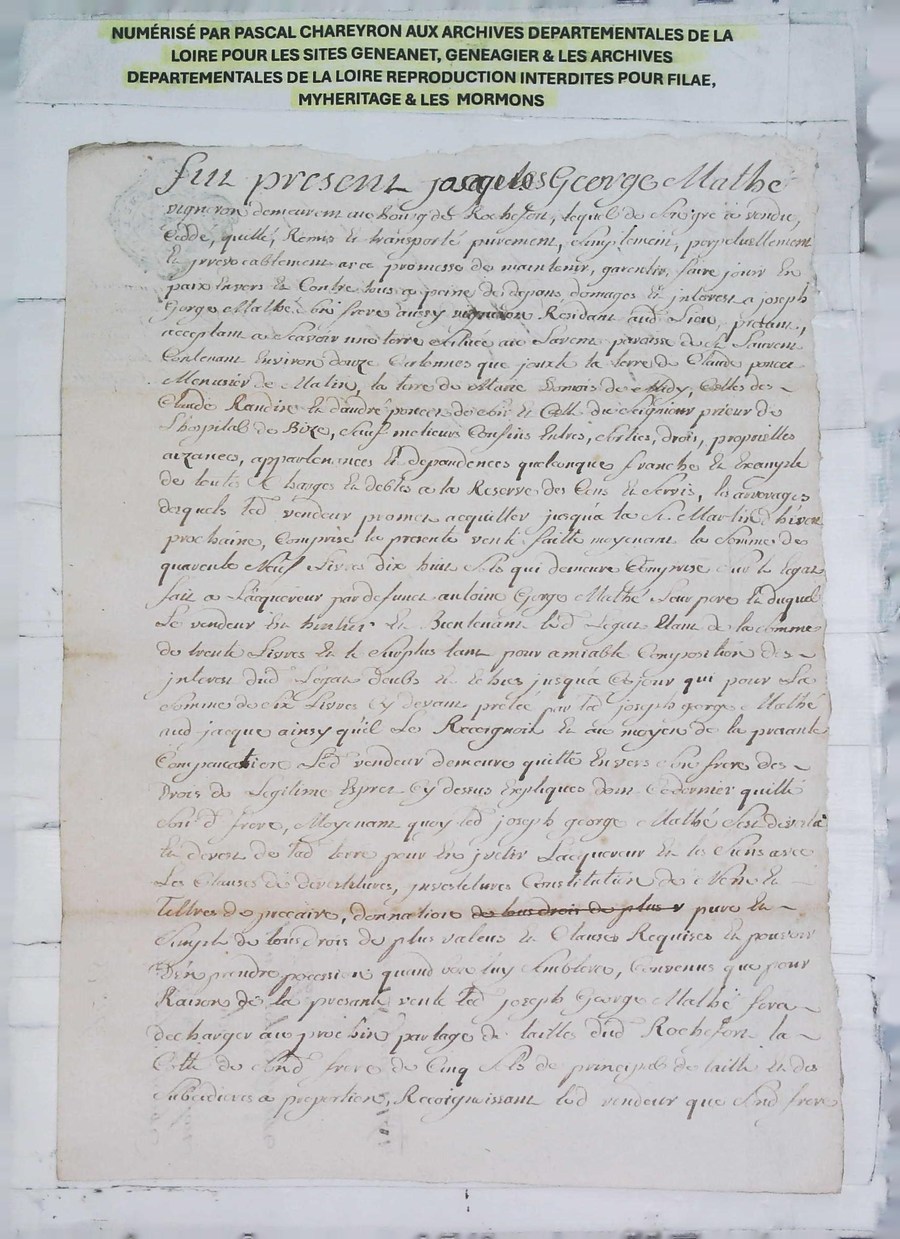 NUMÉRISÉ PAR PASCAL CHAREYRON AUX ARCHIVES DEPARTEMENTALES DE LA
LOIRE POUR LES SITES GENEANET, GENEAGIER & LES ARCHIVES
DEPARTEMENTALES DE LA LOIRE REPRODUCTION INTERDITES POUR FILAE,
MYHERITAGE & LES MORMONS
fut present jacques George Mathé
vigneron demeurant au bourg de Rochefort, lequel de son gre a vendu,
Ceddé, quitté, Remis et transporté purement, simplement, perpetuellement
Et irrevocablement avec promesse de maintenir, garentir, faire jouir en
paix Envers et Contre tous a peine de depans domages et interest a joseph
George Mathé son frere aussy vigneron Residant aud Lieu, presant,
acceptant a scavoir une terre située au parroisse de St Laurent
Contenant Environ douze que jouxte la terre de Claude poncet
Menusier de Matin, la terre de Marie de Midy, Celles de
Claude Randin et d'andré poncet de soir et Celle du seigneur prieur de
L'hopital de Bize, sauf melieurs Confins Entres, sorties, drois, proprietes
aizances, appartenances et dependences quelconque franche et Exempte
de toutes Charges et debtes a la Reserve des Cens et servis, les arrerages
desquels led vendeur promet acquitter jusqu'a la St Martin d'hiver
prochaine, Comprise la presente vente faitte moyenant la somme de
quarente Neuf Livres dix huit sols qui demeure Comprise sur le legat
fait a L'acquereur par defunct antoine George Mathé Leur pere et duquel
Le vendeur Est heritier et Bientenant led Legat Etant de la somme
de trente Livres et le surplus tant pour amiable Composition des
interest dud Legat doubs et Echus jusqu'a Cejour qui pour La
somme de six Livres Cy devant prétée par led joseph george Mathé
aud jacque ainsy qu'il Le Recoignoit et au moyen de la presante
Compensation Led vendeur demeure quitte Envers son frere des
Drois de Legitime Cy dessus Expliques dont Ce dernier quitte
Son d frere, Moyenant quoy led joseph george Mathé s'est devestu
de lad terre pour En L'acquereur et les siens avec
Les Clauses de devestitures, investitures Constitution de et
Tiltres de precaire, donnation de tous drois de plus v pure et
Simple de tous drois de plus valeur et Clauses Requises et pouvoir
D'en prandre possession quand bon luy semblera, Convenus que pour
Raison de la presant vente led joseph George Mathé fera
decharger au prochin partage de taille dud Rochefort la
Cotte de sond frere de Cinq sols de principal de taille et des
Subcidieres a proportion, Recoignoissant led vendeur que sond frere